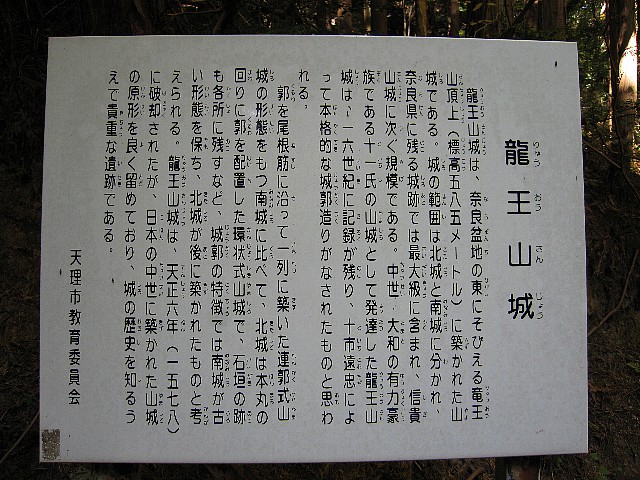 龍王山城
龍王山城は、奈良盆地の東にそびえる竜王
山頂上（標高五八五メートル）に築かれた山
城である。城の範囲は北城と南城に分かれ、
奈良県に残る城跡では最大級に含まれ、信貴
山城に次ぐ規模である。中世、大和の有力豪
族である十市氏の山城として発達した龍王山
城は、一六世紀に記録が残り、十市遠忠によ
って本格的な城郭造りがなされたものと思わ
れる。
郭を尾根筋に沿って一列に築いた連郭式山
城の形態をもつ南城に比べて、北城は本丸の
回りに郭を配置した環状式山城で、石垣の跡
も各所に残すなど、城郭の特徴では南城が古
い形態を保ち、北城が後に築かれたものと考
えられる。龍王山城は、天正六年（一五七八）
に破却されたが、日本の中世に築かれた山城
の原形を良く留めており、城の歴史を知るう
えで貴重な遺跡である。
天理市教育委員会